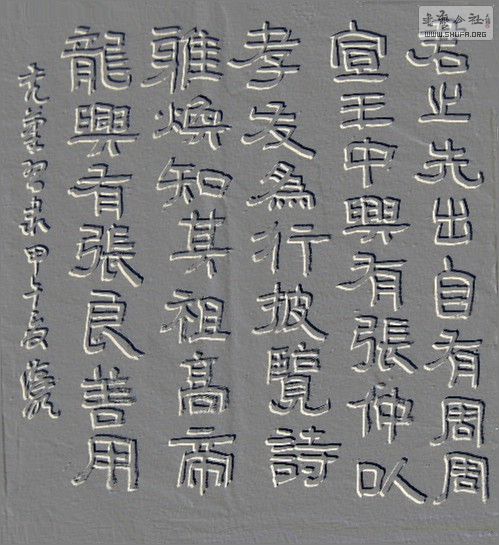 君之先出自有周周
宣王中興有張仲以
孝友為行披覽詩
雅煥知其祖高帝
龍興有張良善用
習隶甲午夏
書藝公社
WWW.SHUFA.ORG